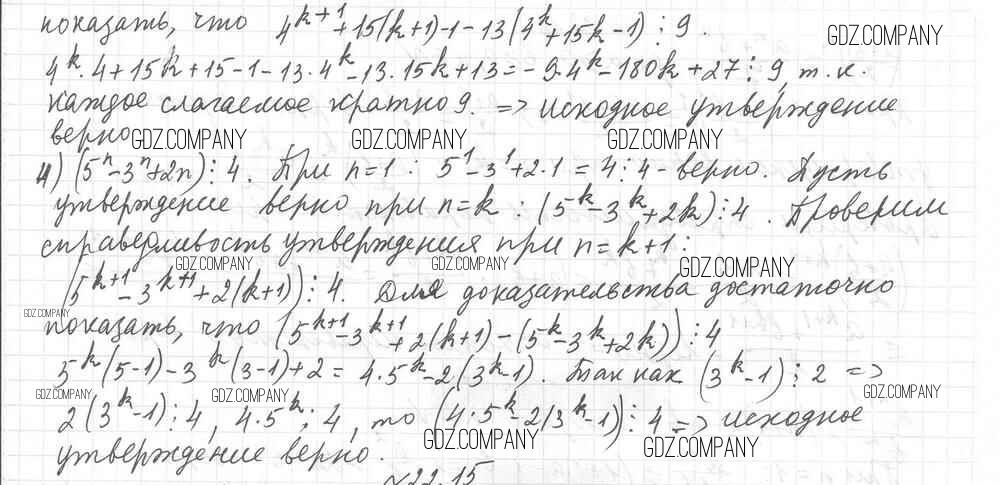 показать, что 4^{k+1}+15(k+1)-1-13(4^k+15k-1)⋮9.
GDZ.COMPANY
4^k·4+15k+15-1-13·4^k-13·15k+13=-9·4^k-180k+27⋮9, т.к.
каждое слагаемое кратно 9. => исходное утверждение
верно
GDZ.COMPANY GDZ.COMPANY GDZ.COMPANY
4) (5^n-3^n+2n)⋮4. При n=1: 5^1-3^1+2·1=4⋮4-верно. Пусть
утверждение верно при n=k: (5^k-3^k+2k)⋮4. Проверим
справедливость утверждения при n=k+1:
GDZ.COMPANY GDZ.COMPANY GDZ.COMPANY
(5^{k+1}-3^{k+1}+2(k+1))⋮4. Для доказательства достаточно
GDZ.COMPANY
показать, что (5^{k+1}-3^{k+1}+2(k+1)-(5^k-3^k+2k))⋮4
5^k(5-1)-3^k(3-1)+2=4·5^k-2(3^k-1). Так как (3^k-1)⋮2 =>
GDZ.COMPANY GDZ.COMPANY GDZ.COMPANY
2(3^k-1)⋮4, 4·5^k⋮4, то (4·5^k-2(3^k-1))⋮4 => исходное
GDZ.COMPANY GDZ.COMPANY
утверждение верно.
№22.15